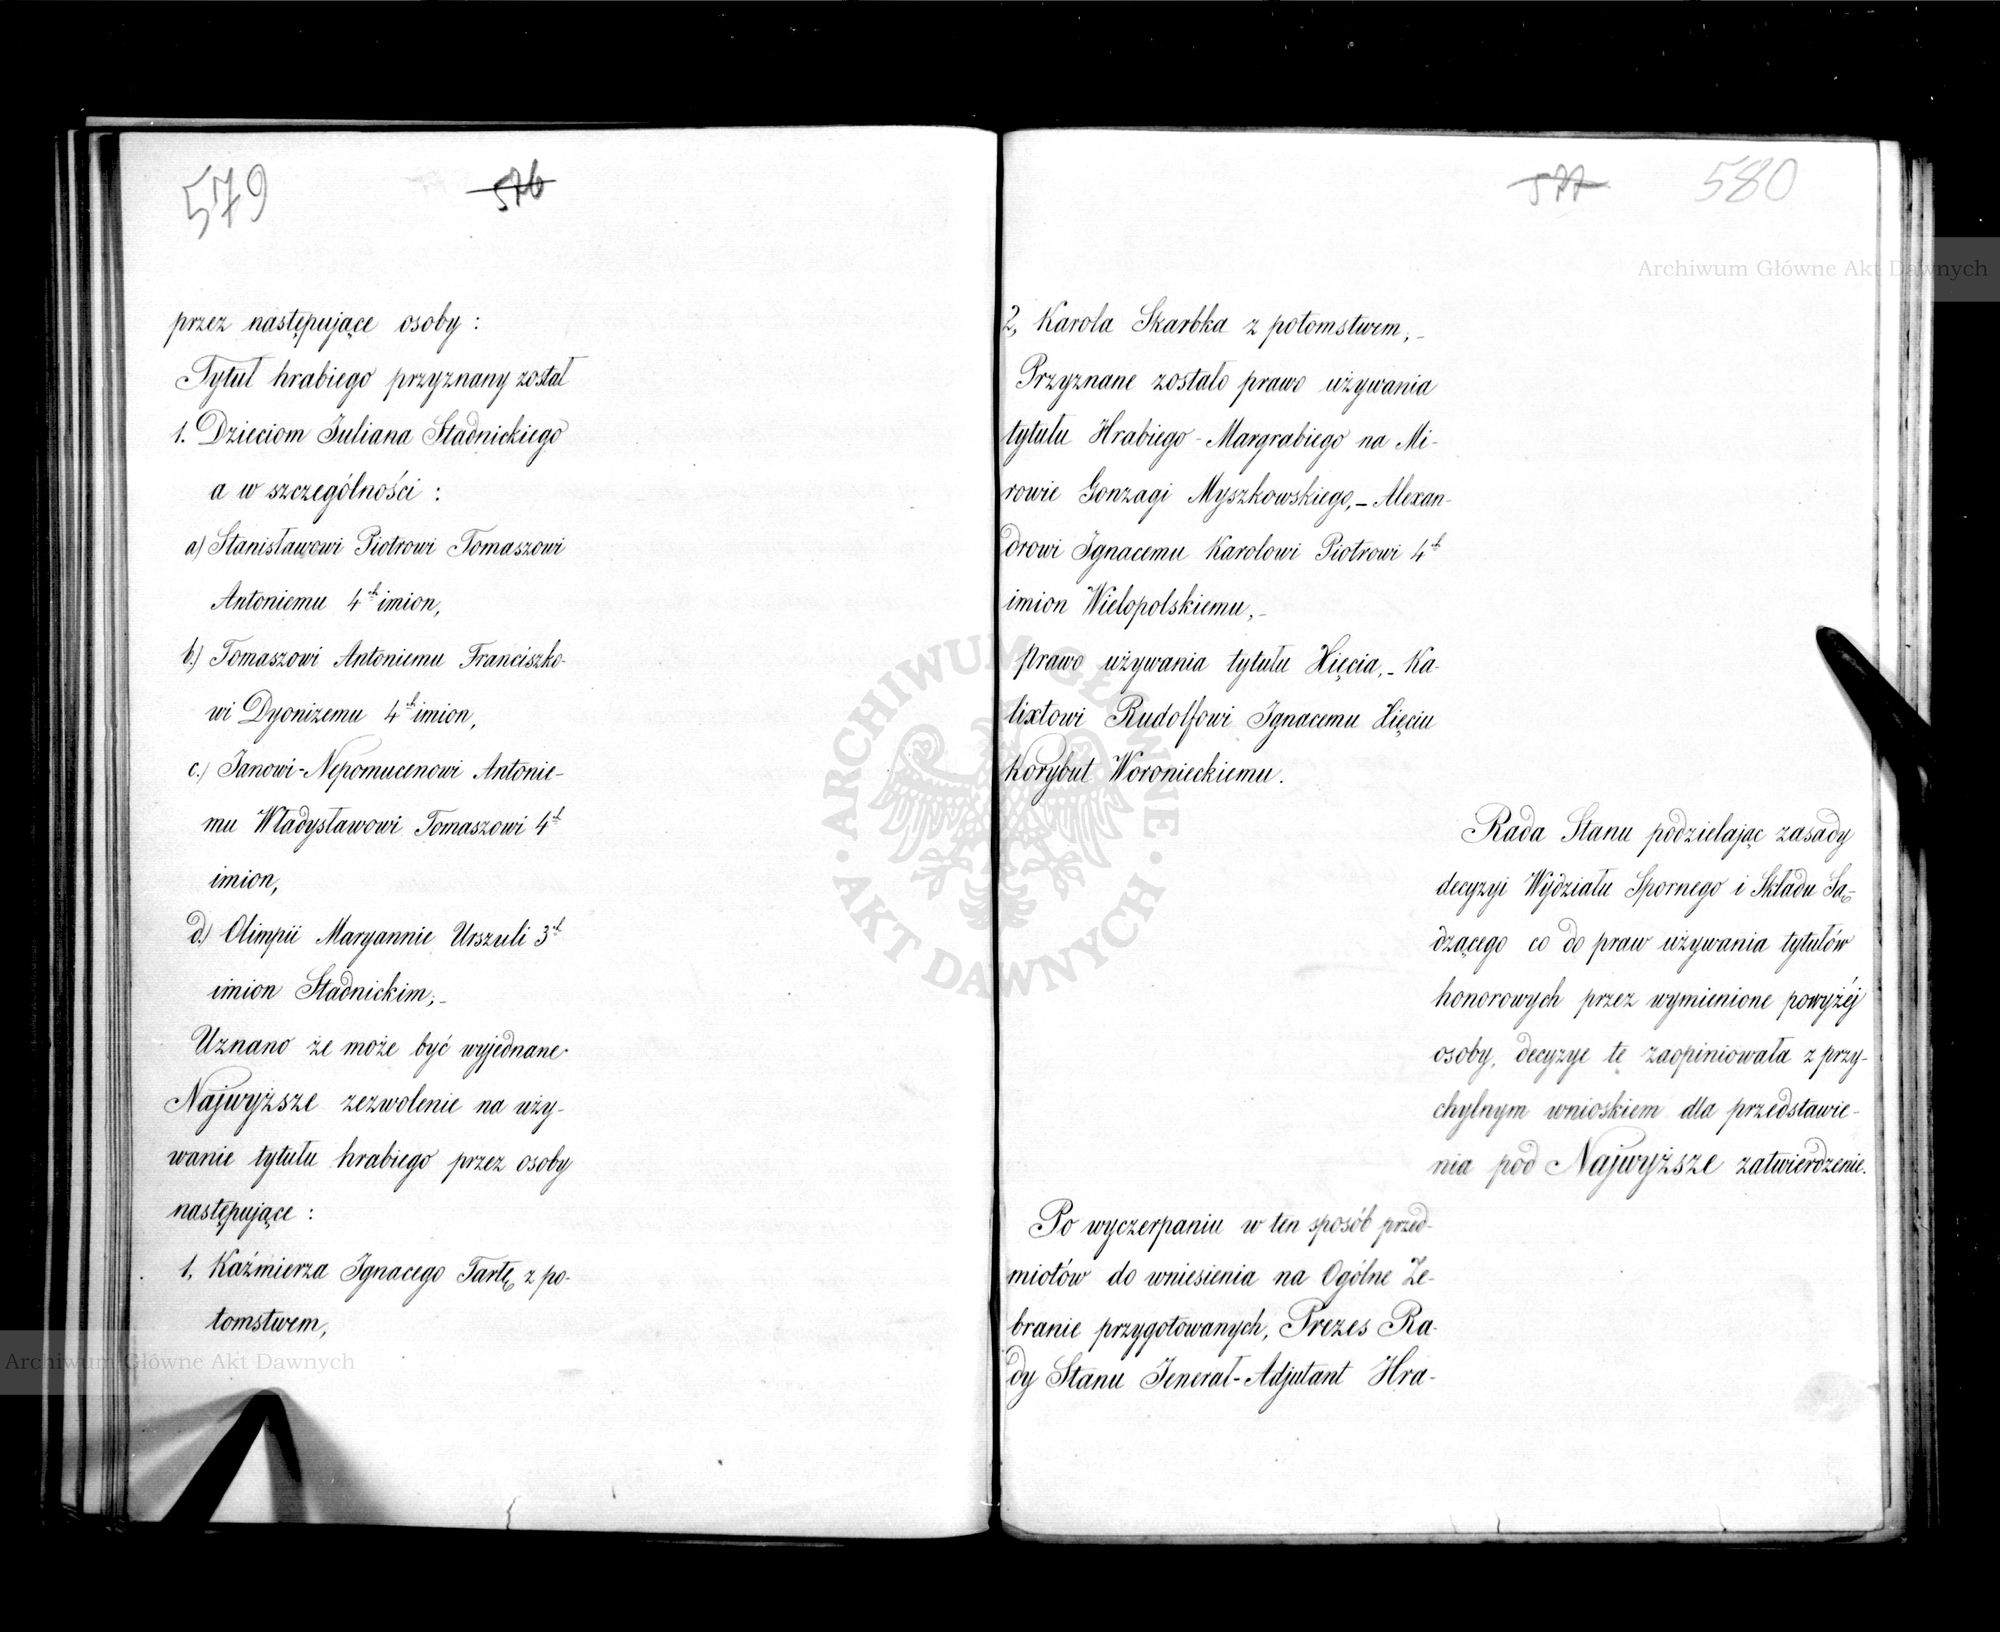 579
576
przez następujące osoby :
Tytuł hrabiego przyznany został
1. Dzieciom Juliana Stadnickiego
a w szczególności :
a) Stanisławowi Piotrowi Tomaszowi
Antoniemu 4ch imion,
b.) Tomaszowi Antoniemu Franciszko-
wi Dyonizemu 4ch imion,
c.) Janowi-Nepomucenowi Antonie-
mu Władysławowi Tomaszowi 4ch
imion,
d.) Olimpii Maryannie Urszuli 3ch
imion Stadnickim;-
Uznano że może być wyjednane
Najwyższe zezwolenie na uży-
wanie tytułu hrabiego przez osoby
następujące :
1, Kaźmierza Ignacego Tarłę z po-
tomstwem,
Archiwum Główne Akt Dawnych
577
580
Archiwum Główne Akt Dawnych
2, Karola Skarbka z potomstwem;-
Przyznane zostało prawo używania
tytułu Hrabiego-Margrabiego na Mi-
rowie Gonzagi Myszkowskiego,- Alexan-
drowi Ignacemu Karolowi Piotrowi 4ch
imion Wielopolskiemu,-
prawo używania tytułu Xięcia,- Ka-
lixtowi Rudolfowi Ignacemu Xięciu
Korybut Woronieckiemu.
Rada Stanu podzielając zasady
decyzyi Wydziału Spornego i Składu Są-
dzącego co do praw używania tytułów
honorowych przez wymienione powyżéj
osoby, decyzye te zaopiniowała z przy-
chylnym wnioskiem dla przedstawie-
nia pod Najwyższe zatwierdzenie.
Po wyczerpaniu w ten sposób przed-
miotów do wniesienia na Ogólne Ze-
branie przygotowanych, Prezes Ra-
dy Stanu Jenerał-Adjutant Hra-
ARCHIWUM GŁÓWNE
AKT DAWNYCH